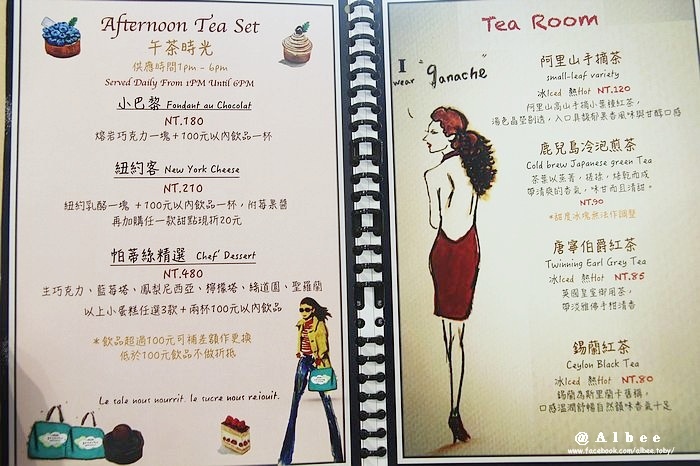 Afternoon Tea Set
午茶時光
供應時間1pm - 6pm
Served Daily From 1PM Until 6PM
小巴黎 Fondant au Chocolat
NT.180
熔岩巧克力一塊 + 100元以內飲品一杯
紐約客 New York Cheese
NT.210
紐約乳酪一塊 + 100元以內飲品一杯，附莓果醬
再加購任一款甜點現折20元
帕蒂絲精選 Chef' Dessert
NT.480
生巧克力、藍莓塔、鳳梨尼西亞、檸檬塔、綠道園、聖羅蘭
以上小蛋糕任選3款 + 兩杯100元以內飲品
*飲品超過100元可補差額作更換
低於100元飲品不做折抵
Le sale nous nourrit, le sucre nous rejouit.
Tea Room
I wear "ganache"
阿里山手摘茶
small-leaf variety
冰Iced 熱Hot NT.120
阿里山高山手摘小葉種紅茶，
湯色晶瑩剔透，入口具馥郁果香風味與甘醇口感
鹿兒島冷泡煎茶
Cold brew Japanese green Tea
茶葉以蒸菁，搓揉，焙乾而成
帶清爽的香氣，味甘而且清甜。
NT.90
*甜度冰塊無法作調整
唐寧伯爵紅茶
Twinning Earl Grey Tea
冰Iced 熱Hot NT.85
英國皇室御用茶，
帶淡雅佛手柑清香
錫蘭紅茶
Ceylon Black Tea
冰Iced 熱Hot NT.80
錫蘭為斯里蘭卡舊稱，
口感溫潤舒暢自然韻味香氣十足
@Albee
www.facebook.com/albee.toby/